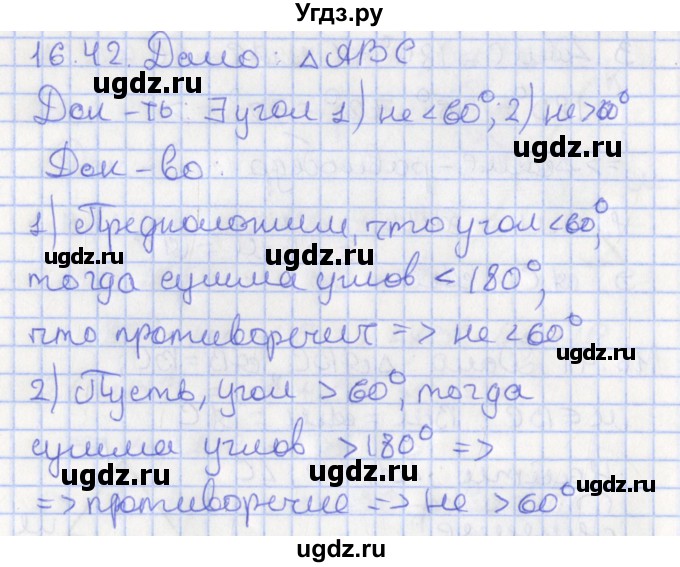 Угдз.ру
16.42. Дано: △ABC
ugdz.ru
ugdz.ru
Док-ть: ∃ угол 1) не <60°; 2) не >60°
ugdz.ru
Док-во:
1) Предположим, что угол <60°,
ugdz.ru
ugdz.ru
тогда сумма углов < 180°,
что противоречит => не <60°
ugdz.ru
2) Пусть, угол > 60°, тогда
ugdz.ru
сумма углов >180° =>
ugdz.ru
ugdz.ru
=> противоречие => не >60°
ugdz.ru
ugdz.ru